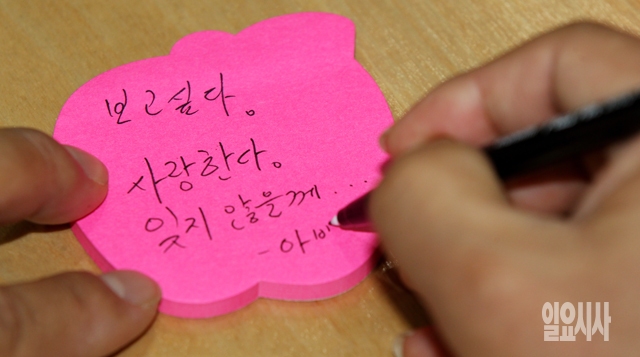 보고싶다.
사랑한다.
잊지 않을께...
- 아비
일요시사